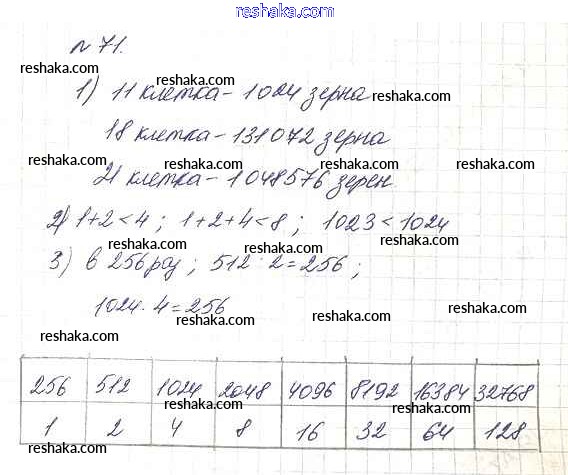 reshaka.com
№71.
reshaka.com reshaka.com reshaka.com
1) 11 клетка – 1024 зерна
reshaka.com
18 клетка – 131072 зерна
reshaka.com reshaka.com reshaka.com
21 клетка – 1048576 зерен
reshaka.com
2) 1+2<4 ; 1+2+4<8 ; 1023<1024
reshaka.com reshaka.com reshaka.com
3) в 256 раз ; 512 : 2 = 256 ;
reshaka.com
1024 : 4 = 256
reshaka.com reshaka.com reshaka.com
256 512 1024 2048 4096 8192 16384 32768
reshaka.com reshaka.com
1 2 4 8 16 32 64 128
reshaka.com reshaka.com